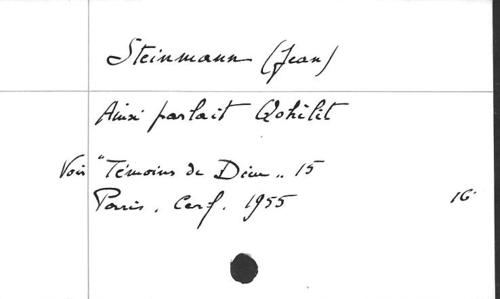 Steinmann (Jean)
Ainsi parlait Qohélèt
Voir "Témoins de Dieu" 15
Paris. Cerf. 1955 16